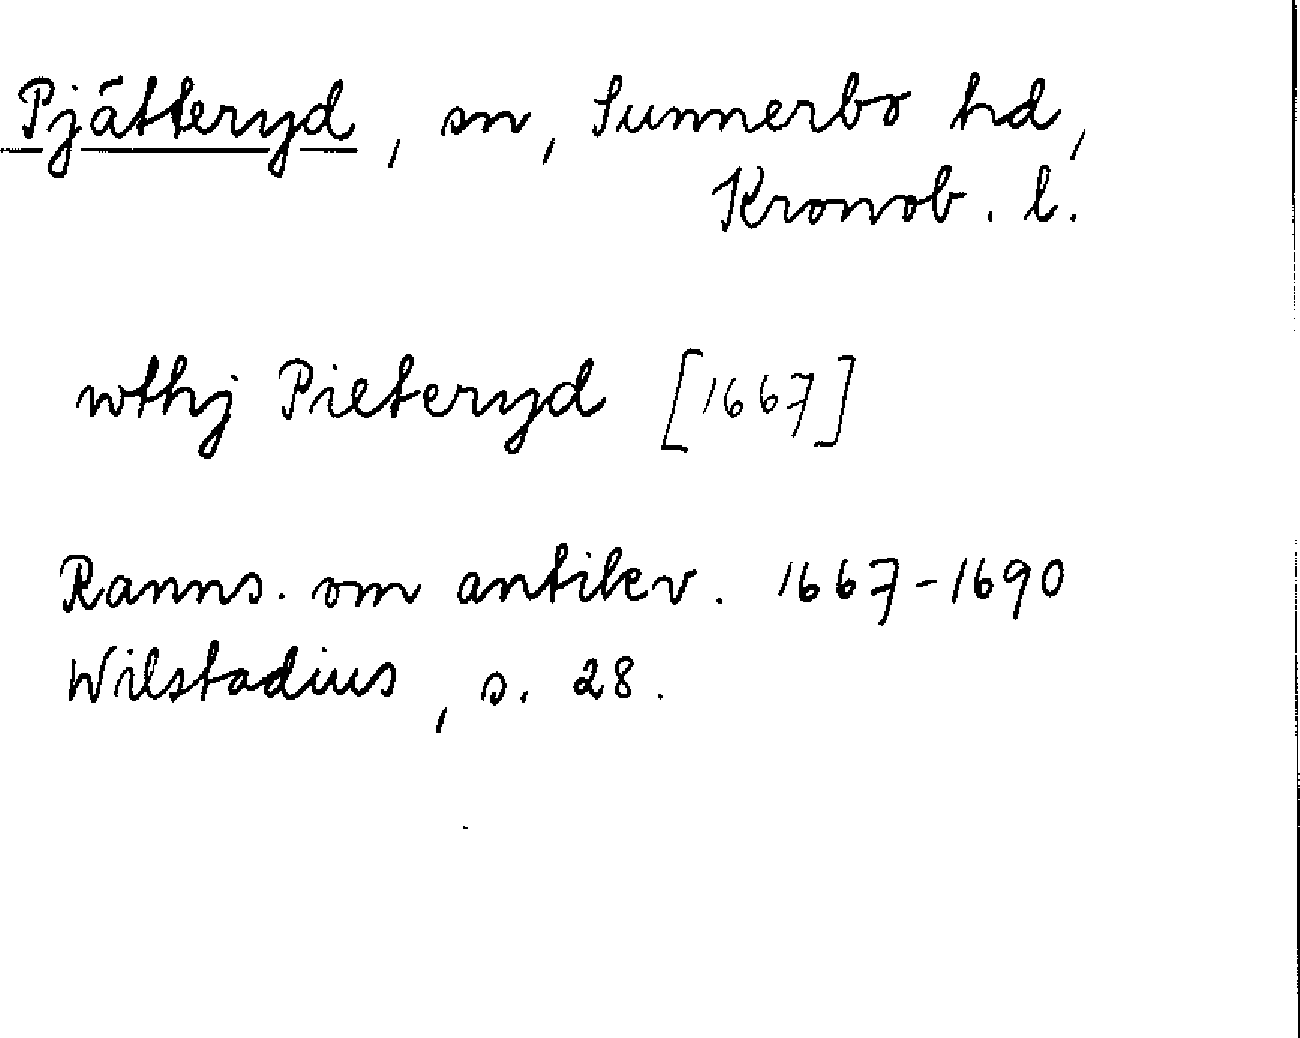 Pjätteryd, sn, Sunnerbo hd,
Kronob. l.
wthj Pieteryd [1667]
Ranns. om antikv. 1667-1690
Wilstadius, s. 28.